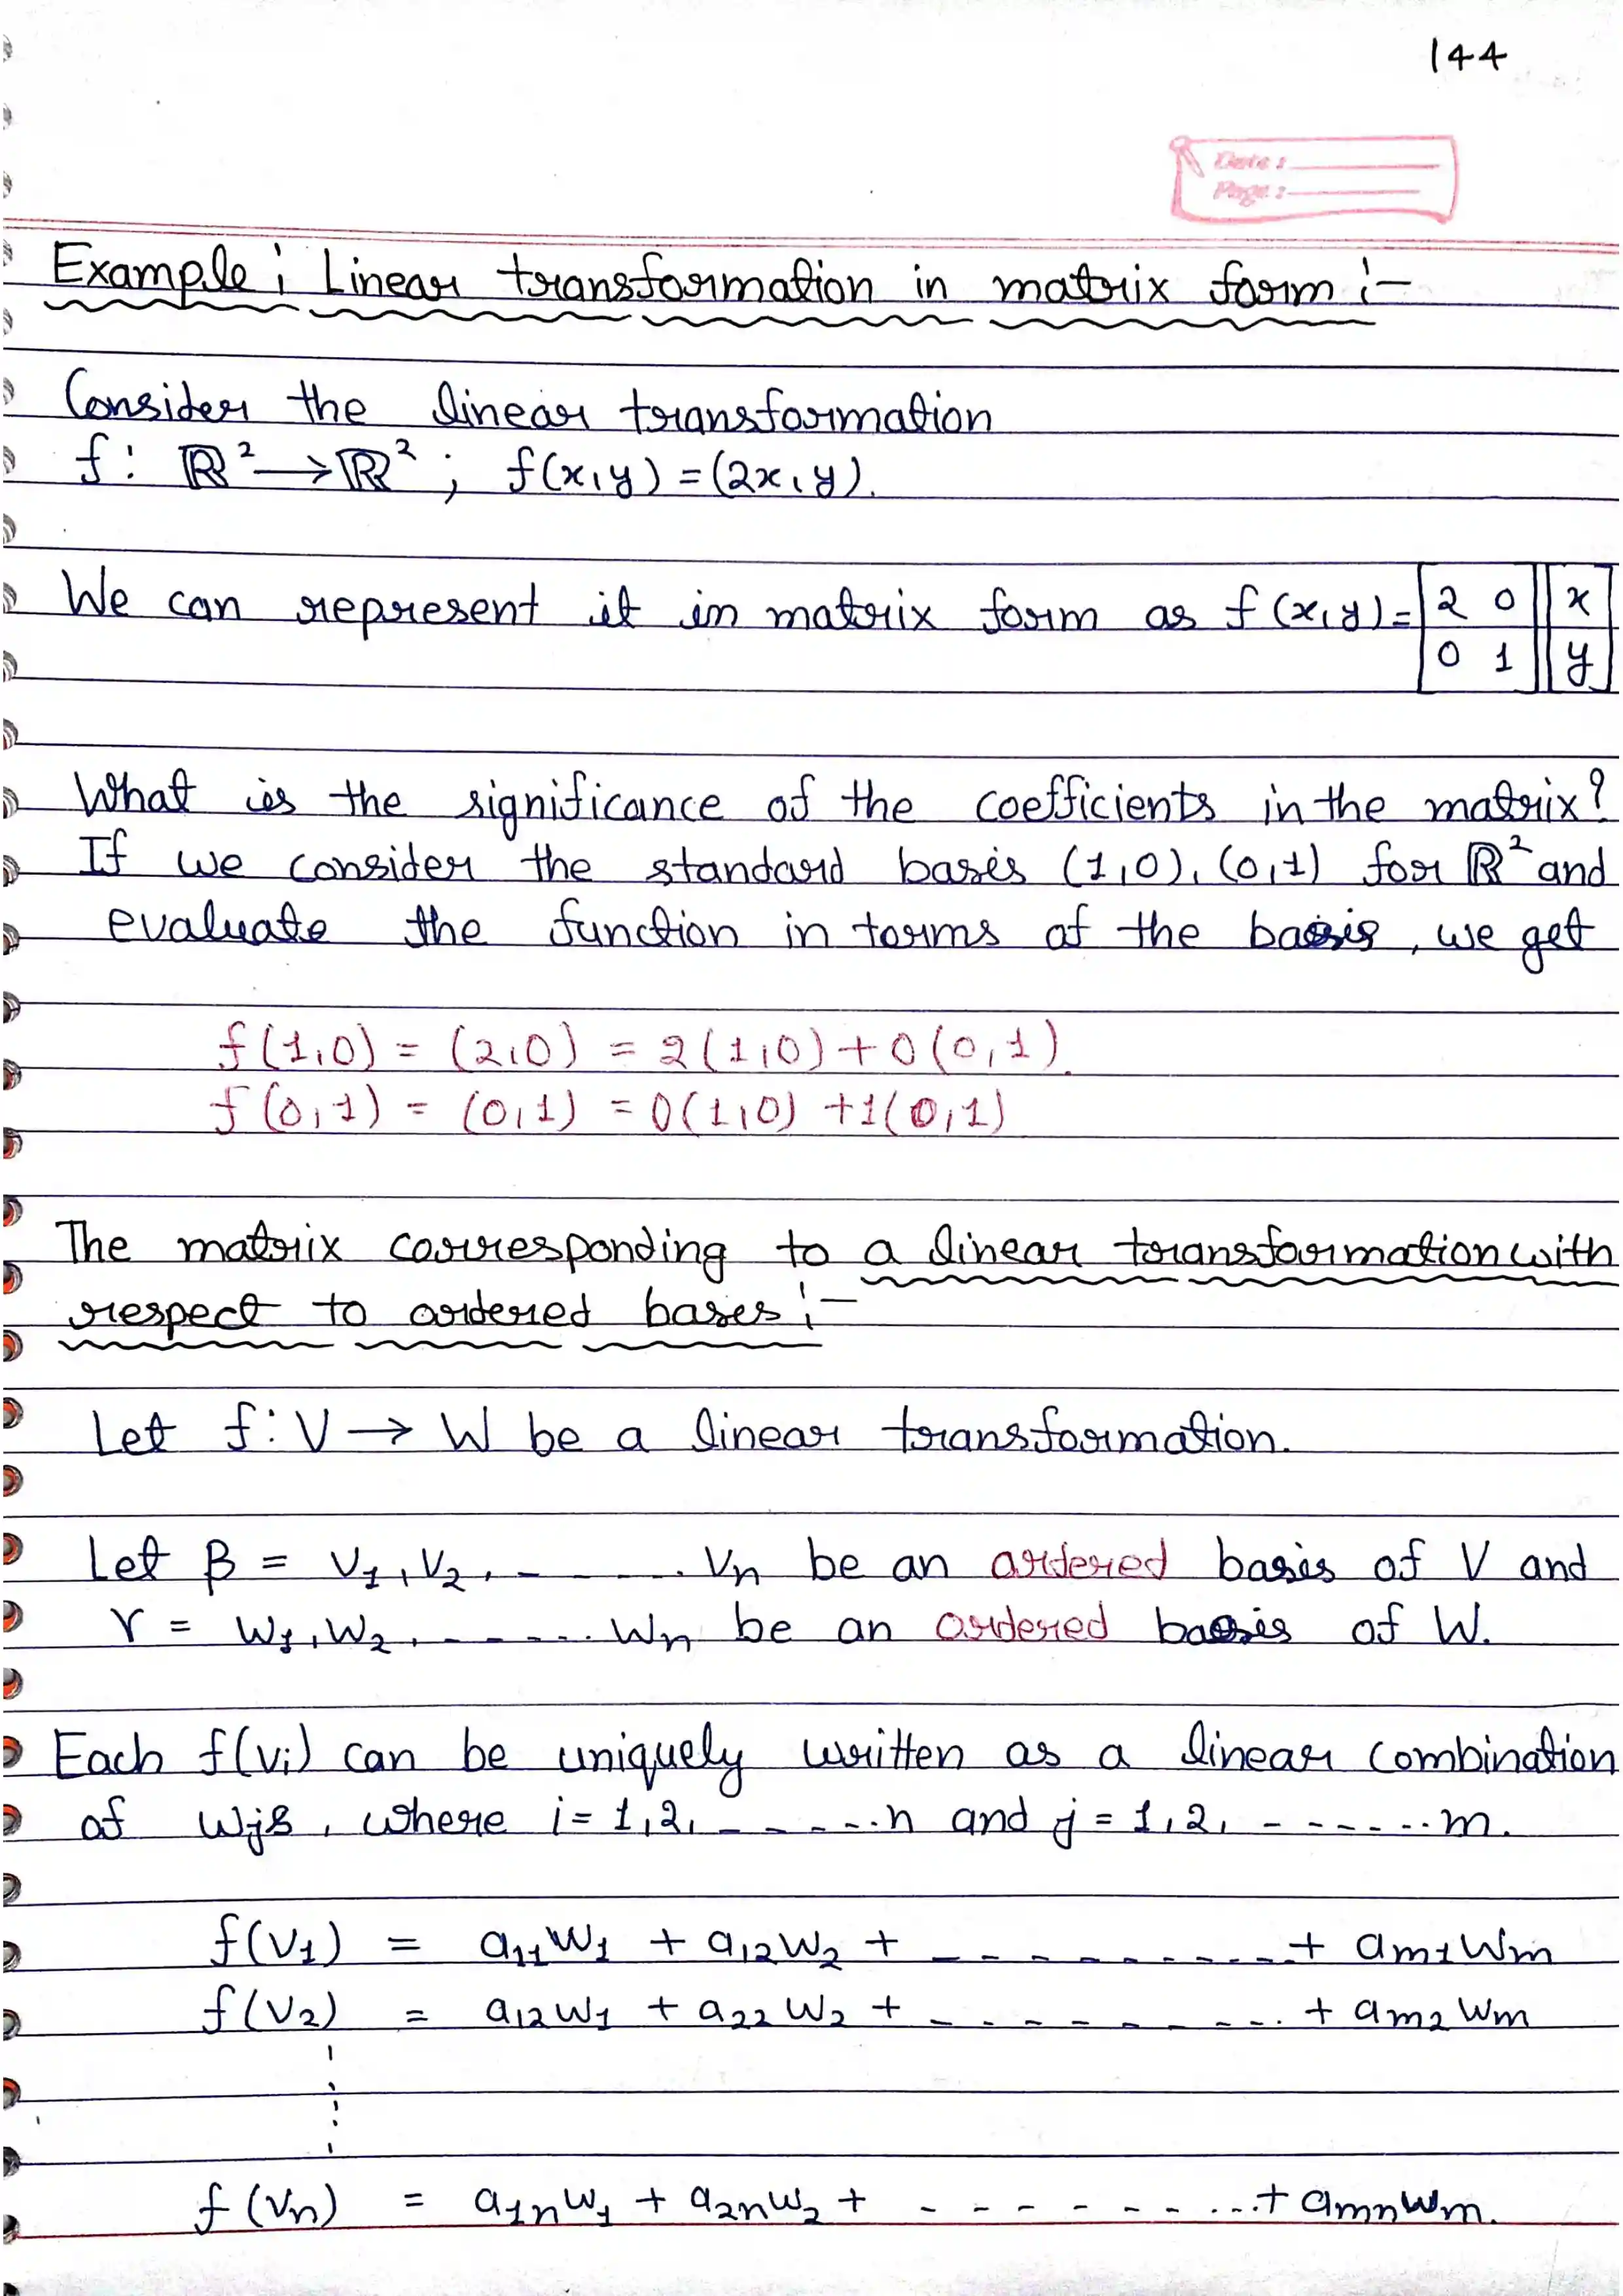 144
Date :
Page :
Example : Linear transformation in matrix form :-
Consider the linear transformation
f : ℝ² → ℝ² ; f(x,y) = (2x, y).
We can represent it in matrix form as f(x,y) = [2 0] [x]
[0 1] [y]
What is the significance of the coefficients in the matrix?
If we consider the standard basis (1,0), (0,1) for ℝ² and
evaluate the function in terms of the basis, we get
f(1,0) = (2,0) = 2(1,0) + 0(0,1).
f(0,1) = (0,1) = 0(1,0) + 1(0,1)
The matrix corresponding to a linear transformation with
respect to ordered bases :-
Let f : V → W be a linear transformation.
Let β = v₁, v₂, ------ vₙ be an ordered basis of V and
γ = w₁, w₂, ------ wₙ be an ordered basis of W.
Each f(vᵢ) can be uniquely written as a linear combination
of wⱼs, where i = 1,2, ------ n and j = 1,2, ------ m.
f(v₁) = a₁₁w₁ + a₁₂w₂ + ---------- + aₘ₁wₘ
f(v₂) = a₁₂w₁ + a₂₂w₂ + ---------- + aₘ₂wₘ
f(vₙ) = a₁ₙw₁ + a₂ₙw₂ + ---------- + aₘₙwₘ.